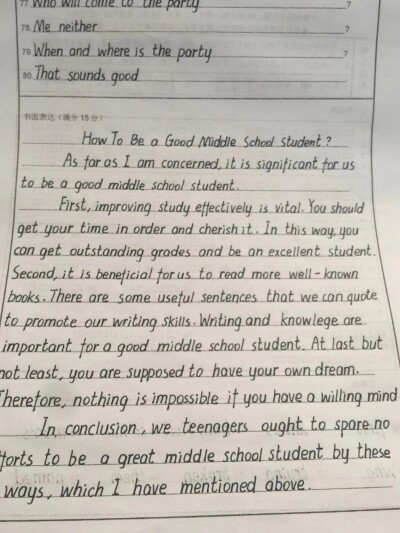 77. Who will come to the party ?
78. Me neither ?
79. When and where is the party ?
80. That sounds good
书面表达(满分15分)
How To Be a Good Middle School Student?
As far as I am concerned, it is significant for us
to be a good middle school student.
First, improving study effectively is vital. You should
get your time in order and cherish it. In this way, you
can get outstanding grades and be an excellent student.
Second, it is beneficial for us to read more well-known
books. There are some useful sentences that we can quote
to promote our writing skills. Writing and knowlege are
important for a good middle school student. At last but
not least, you are supposed to have your own dream.
Therefore, nothing is impossible if you have a willing mind
In conclusion, we teenagers ought to spare no
forts to be a great middle school student by these
ways, which I have mentioned above.